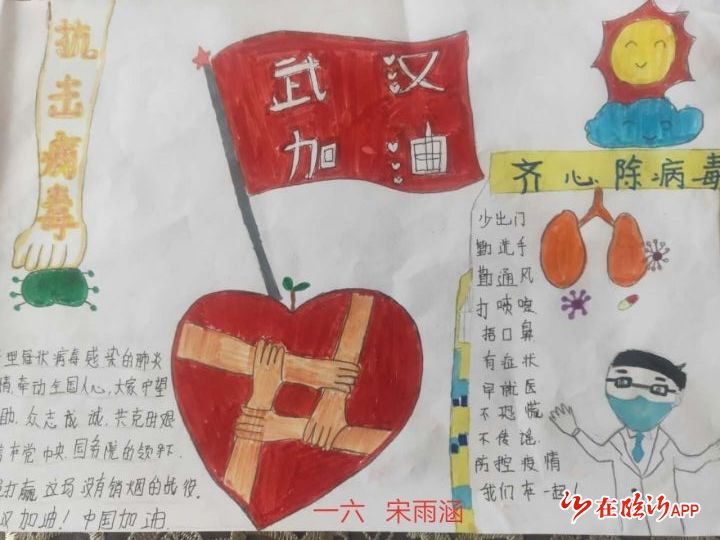 抗击病毒
武汉
加油
齐心除病毒
少出门
勤洗手
勤通风
打喷嚏
捂口鼻
有症状
早就医
不恐慌
不传谣
防控疫情
我们在一起!
型冠状病毒感染的肺炎
情,牵动全国人心,大家守望
助,众志成诚,共克时艰
党中央、国务院的领导下
打赢这场没有销烟的战役
汉加油!中国加油
一六 宋雨涵
在临沂APP